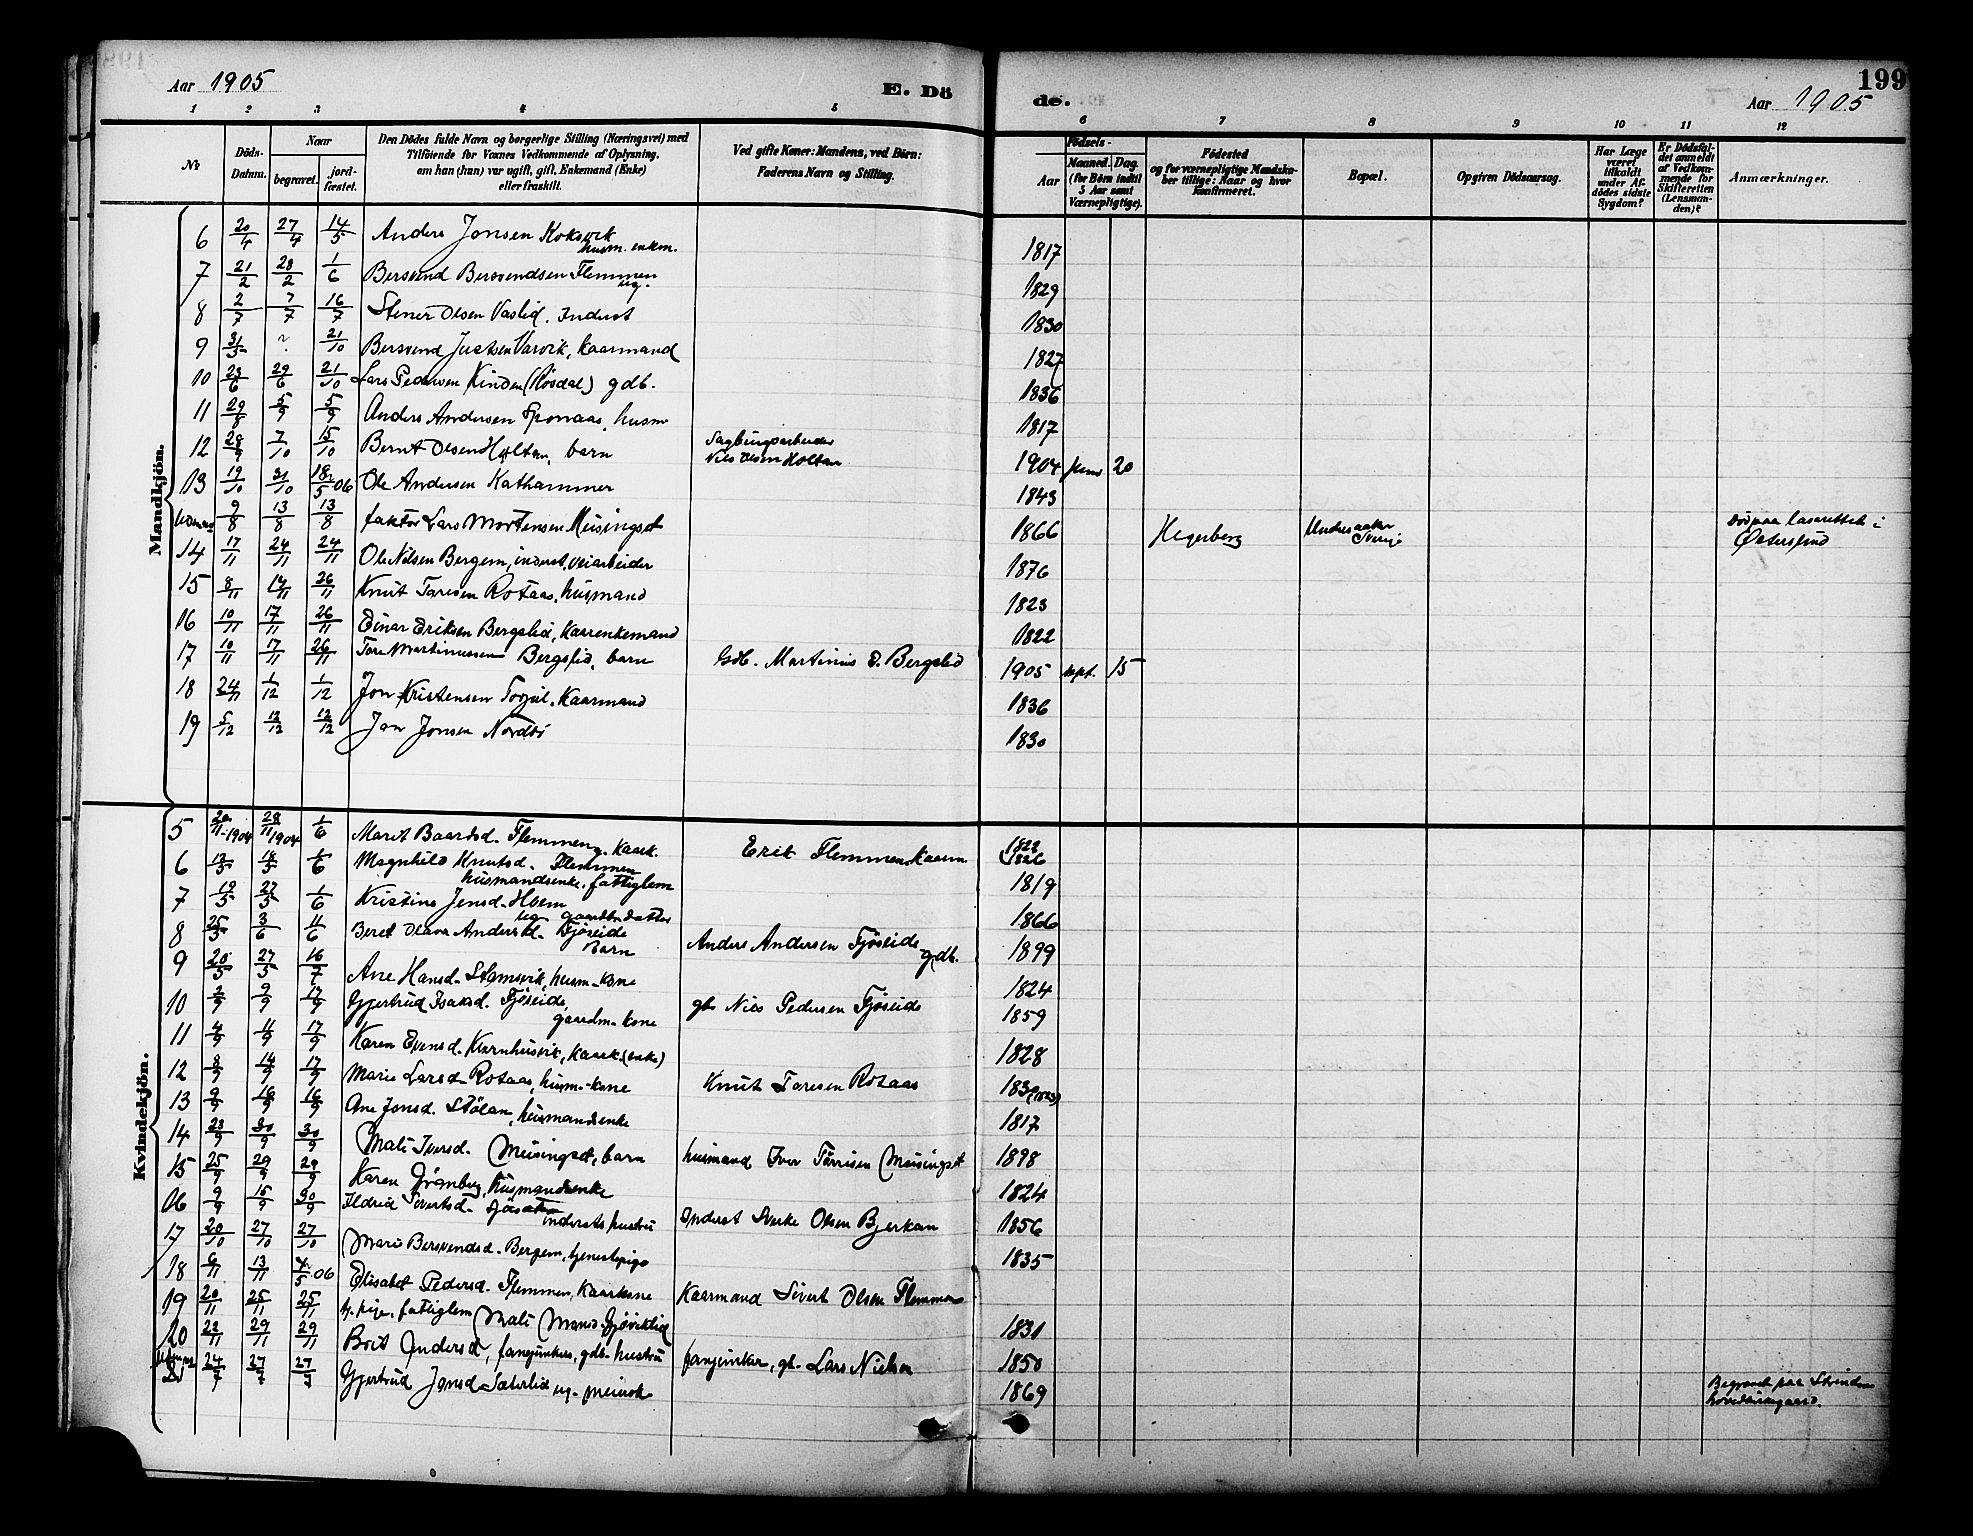 199
Aar 1905 E. Dö de. Aar 1905
1 2 3 4 5 6 7 8 9 10 11 12
No
Döds-Datum.
Naar
begravet.
jordfæstet.
Den Dödes fulde Navn og borgerlige Stilling (Næringsvei) med
Tilföiende for Voxnes Vedkommende af Oplysning,
om han (hun) var ugift, gift, Enkemand (Enke)
eller fraskilt.
Ved gifte Koner: Mandens, ved Börn:
Faderens Navn og Stilling.
Födsels-
Aar
Maaned. Dag.
(for Börn indtil
5 Aar samt
Værnepligtige).
Födested
og for værnepligtige Mandskaber tillige: Naar og hvor
konfirmeret.
Bopæl.
Opgiven Dödsaarsag.
Har Læge
været
tilkaldt
under Afdödes sidste
Sygdom?
Er Dödsfaldet anmeldt
af Vedkommende for
Skifteretten
(Lensmanden)?
Anmærkninger.
Mandkjön.
6 20/4 27/4 14/5 Anders Jonsen Koksvik husm. enkem. 1817
7 21/2 28/2 1/6 Bersvend Bersvendsen Flemmen ug. 1829
8 2/7 7/7 16/7 Stener Olsen Vaslid. Inderst 1830
9 31/5 ? 21/10 Bersvend Justsen Varvik, kaarmand 1827
10 23/6 29/6 21/10 Lars Pedersen Kinden (Røsdal) gdb. 1836
11 29/8 5/9 5/9 Anders Andersen Sponaas, husm 1817
12 28/9 7/10 15/10 Bernt Olsen Holtan, barn Sagbrugsarbeider
Nils Olsen Holtan 1904 juni 20
13 19/10 31/10 18/5 06 Ole Andersen Kathammer 1843
9/8 13/8 13/8 faktor Lars Mortensen Meisingset 1866 Hegerberg Undersaaker
Sverige Död paa lasarettet i
Østersund
14 17/11 24/11 24/11 Ole Nilsen Bergem, inderst, veiarbeider 1876
15 8/11 14/11 26/11 Knut Toresen Rotaas, husmand 1823
16 10/11 17/11 26/11 Einar Eriksen Bergslid, Kaarenkemand 1822
17 10/11 17/11 26/11 Tore Martinussen Bergslid, barn Gdb. Martinus E. Bergslid 1905 sept. 15
18 24/11 1/12 1/12 Jon Kristensen Torjul. Kaarmand 1836
19 5/12 12/12 12/12 Jon Jonsen Nordbö 1830
Kvindekjön.
5 20/11 1904 28/11 1904 1/6 Marit Baardsd. Flemmen, Kaark. Erik Flemmen Kaarm 1822
(1826
6 12/5 18/5 1/6 Magnhild Knutsd. Flemmen
husmandsenke. fattiglem 1819
7 19/5 27/5 1/6 Kristine Jensd. Hoem
ug gaardbr.datter 1866
8 25/5 3/6 11/6 Beret Olava Andersd. Fjøseide
Barn Anders Andersen Fjøseide gdb. 1899
9 20/5 27/5 16/7 Ane Hansd. Stamsvik, husm-kone 1824
10 2/9 9/9 17/9 Gjertrud Isaksd. Fjøseide,
gaardm-kone gb Nils Pedersen Fjøseide 1859
11 4/9 11/9 17/9 Karen Evensd. Kvernhusvik, kaark. (enke) 1828
12 8/9 14/9 17/9 Marie Larsd. Rotaas, husm-kone Knut Toresen Rotaas 183
13 9/9 16/9 16/9 Ane Jonsd. Stølan, husmandsenke 1817
14 23/9 30/9 30/9 Mali Iversd. Meisingset, barn husmand Iver Tørrisen Meisingset 1898
15 25/9 29/9 29/9 Karen Grønberg, husmandsenke 1824
16 9/9 15/9 30/9 Ildrid Sivertsd.
inderstshustru Inderst Sverke Olsen Bjerkan 1856
17 20/10 27/10 27/10 Mari Bersvendsd. Bergem, tjenestepige 1835
18 6/11 13/11 4/5 06 Elisabet Pedersd. Flemmen, Kaarkone Kaarmand Sivert Olsen Flemmen
19 20/11 25/11 25/11 tj. pige. fattiglem Mali Monsd. Gjöviklid 1831
20 22/11 29/11 29/11 Brit Andersd, fanejunkers, gdb. hustru fanejunker, gb. Lars Nielsen 1850
24/7 27/7 27/7 Gjertrud Jonsd Sæterlid ug. meierske 1869 Begravet paa Strindens
hovedkirkegaard.